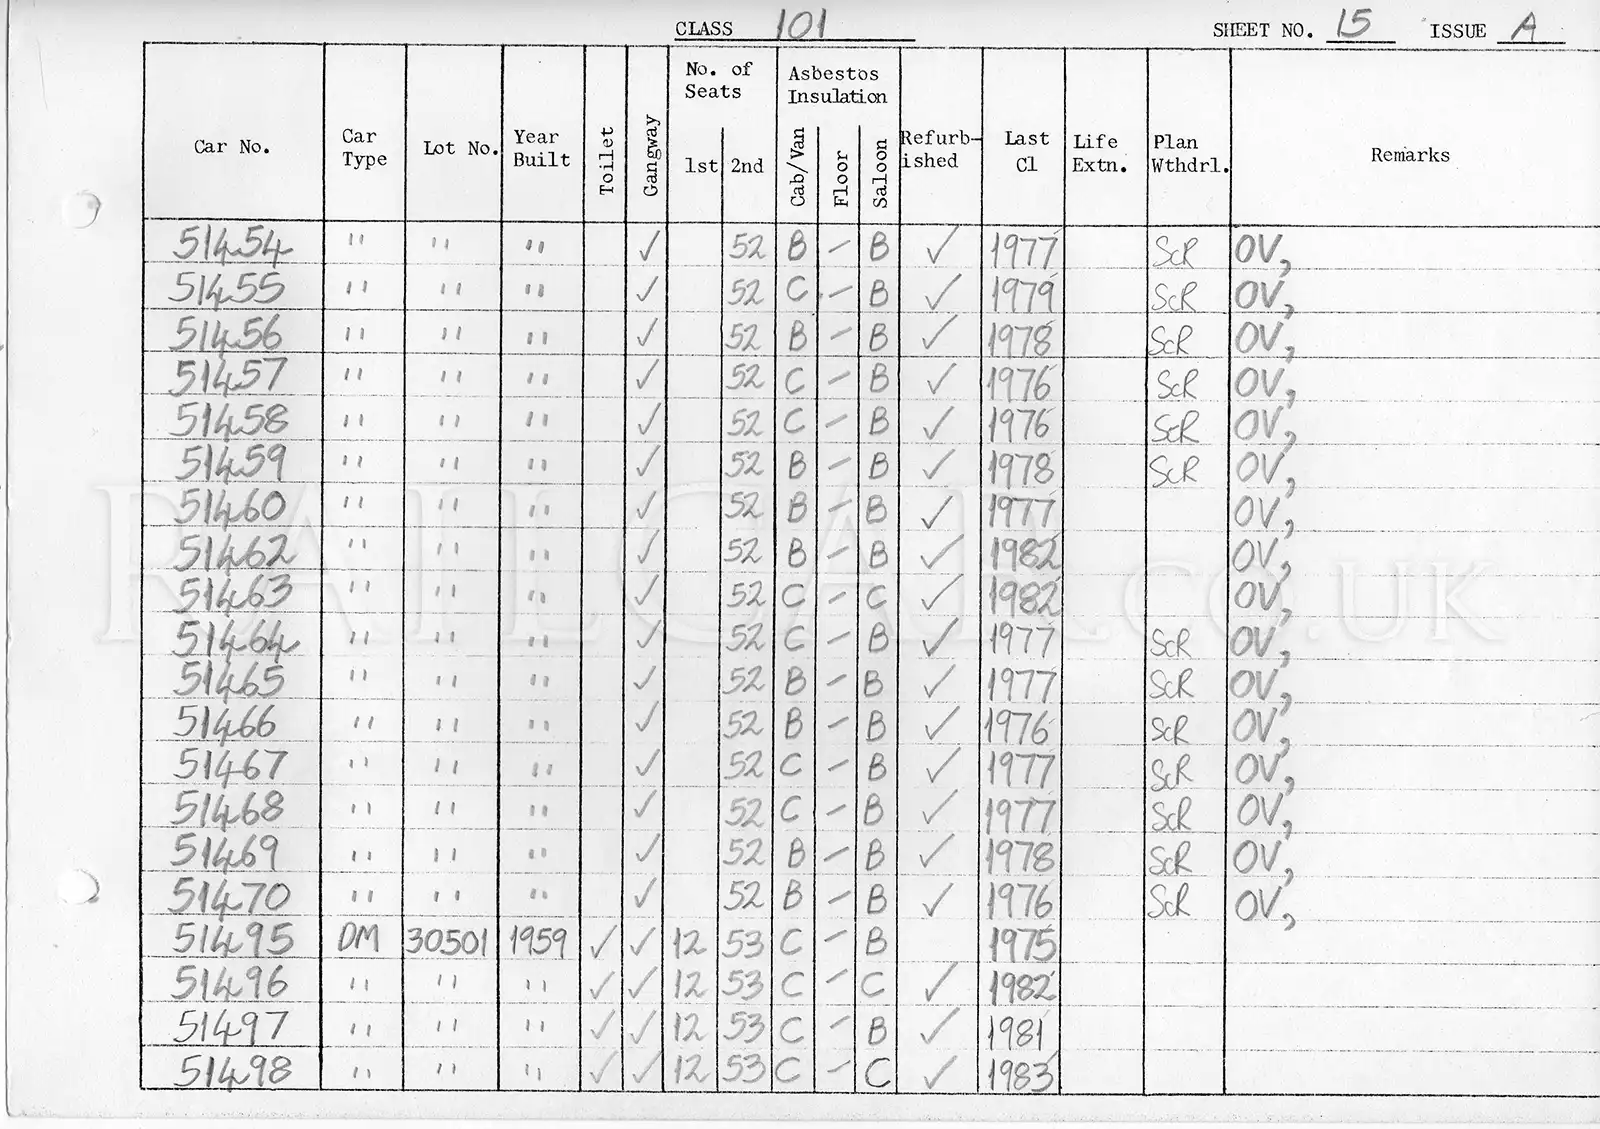 CLASS 101 SHEET NO. 15 ISSUE A
Car No. Car Type Lot No. Year Built Toilet Gangway No. of Seats 1st 2nd Asbestos Insulation Cab/Van Floor Saloon Refurb-ished Last Cl Life Extn. Plan Wthdrl. Remarks
51454 " " " ✓ 52 B – B ✓ 1977 ScR OV,
51455 " " " ✓ 52 C – B ✓ 1979 ScR OV,
51456 " " " ✓ 52 B – B ✓ 1978 ScR OV,
51457 " " " ✓ 52 C – B ✓ 1976 ScR OV,
51458 " " " ✓ 52 C – B ✓ 1976 ScR OV,
51459 " " " ✓ 52 B – B ✓ 1978 ScR OV,
51460 " " " ✓ 52 B – B ✓ 1977 OV,
51462 " " " ✓ 52 B – B ✓ 1982 OV,
51463 " " " ✓ 52 C – C ✓ 1982 OV,
51464 " " " ✓ 52 C – B ✓ 1977 ScR OV,
51465 " " " ✓ 52 B – B ✓ 1977 ScR OV,
51466 " " " ✓ 52 B – B ✓ 1976 ScR OV,
51467 " " " ✓ 52 C – B ✓ 1977 ScR OV,
51468 " " " ✓ 52 C – B ✓ 1977 ScR OV,
51469 " " " ✓ 52 B – B ✓ 1978 ScR OV,
51470 " " " ✓ 52 B – B ✓ 1976 ScR OV,
51495 DM 30501 1959 ✓ ✓ 12 53 C – B 1975
51496 " " " ✓ ✓ 12 53 C – C ✓ 1982
51497 " " " ✓ ✓ 12 53 C – B ✓ 1981
51498 " " " ✓ ✓ 12 53 C – C ✓ 1983
RAILCAR.CO.UK